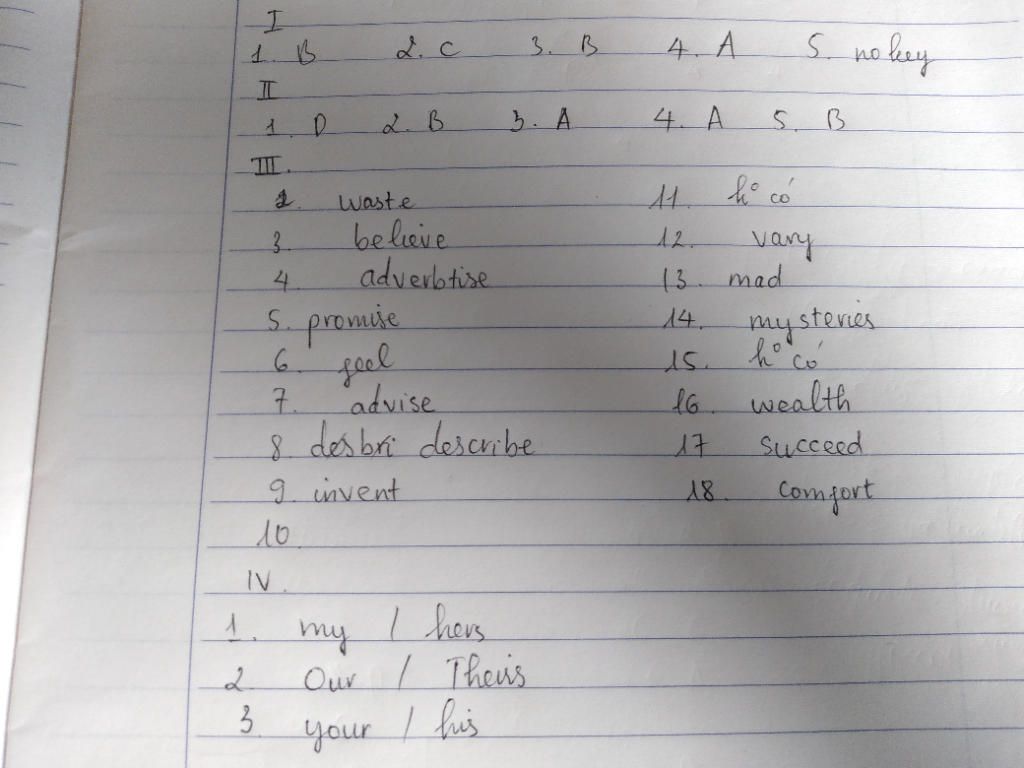 I
1. B 2. C 3. B 4. A 5. no key
II
1. D 2. B 3. A 4. A 5. B
III.
2. waste 11. k° có
3. believe 12. vary
4. advertise 13. mad
5. promise 14. mysteries
6. 15. k° có
7. advise 16. wealth
8 desbri describe 17 succeed
9. invent 18. comfort
10.
IV.
1. my / hers
2. Our / Theirs
3. your / his